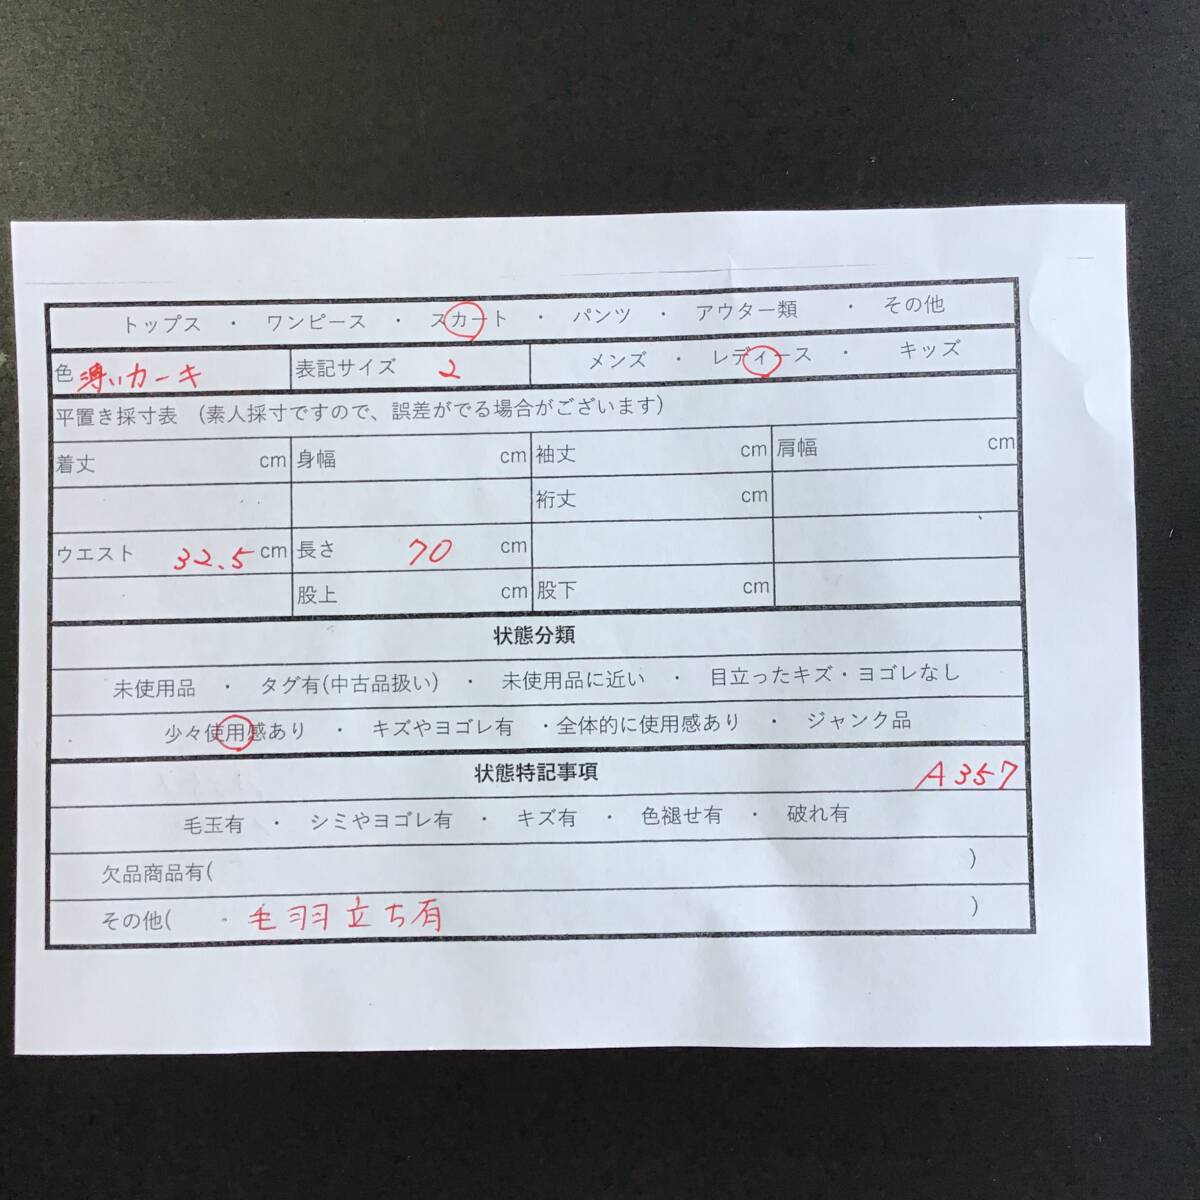 トップス ・ ワンピース ・ スカート ・ パンツ ・ アウター類 ・ その他
色 薄いカーキ 表記サイズ 2 メンズ ・ レディース ・ キッズ
平置き採寸表 （素人採寸ですので、誤差がでる場合がございます）
着丈 cm 身幅 cm 袖丈 cm 肩幅 cm
裄丈 cm
ウエスト 32.5 cm 長さ 70 cm
股上 cm 股下 cm
状態分類
未使用品 ・ タグ有(中古品扱い) ・ 未使用品に近い ・ 目立ったキズ・ヨゴレなし
少々使用感あり ・ キズやヨゴレ有 ・全体的に使用感あり ・ ジャンク品
状態特記事項 A357
毛玉有 ・ シミやヨゴレ有 ・ キズ有 ・ 色褪せ有 ・ 破れ有
欠品商品有( )
その他( ・毛羽立ち有 )